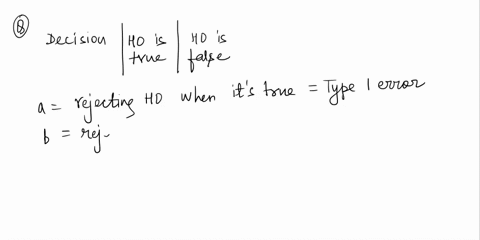 8
Decision | HO is true | HO is false
a = rejecting HO when it's true = Type 1 error
b = rej